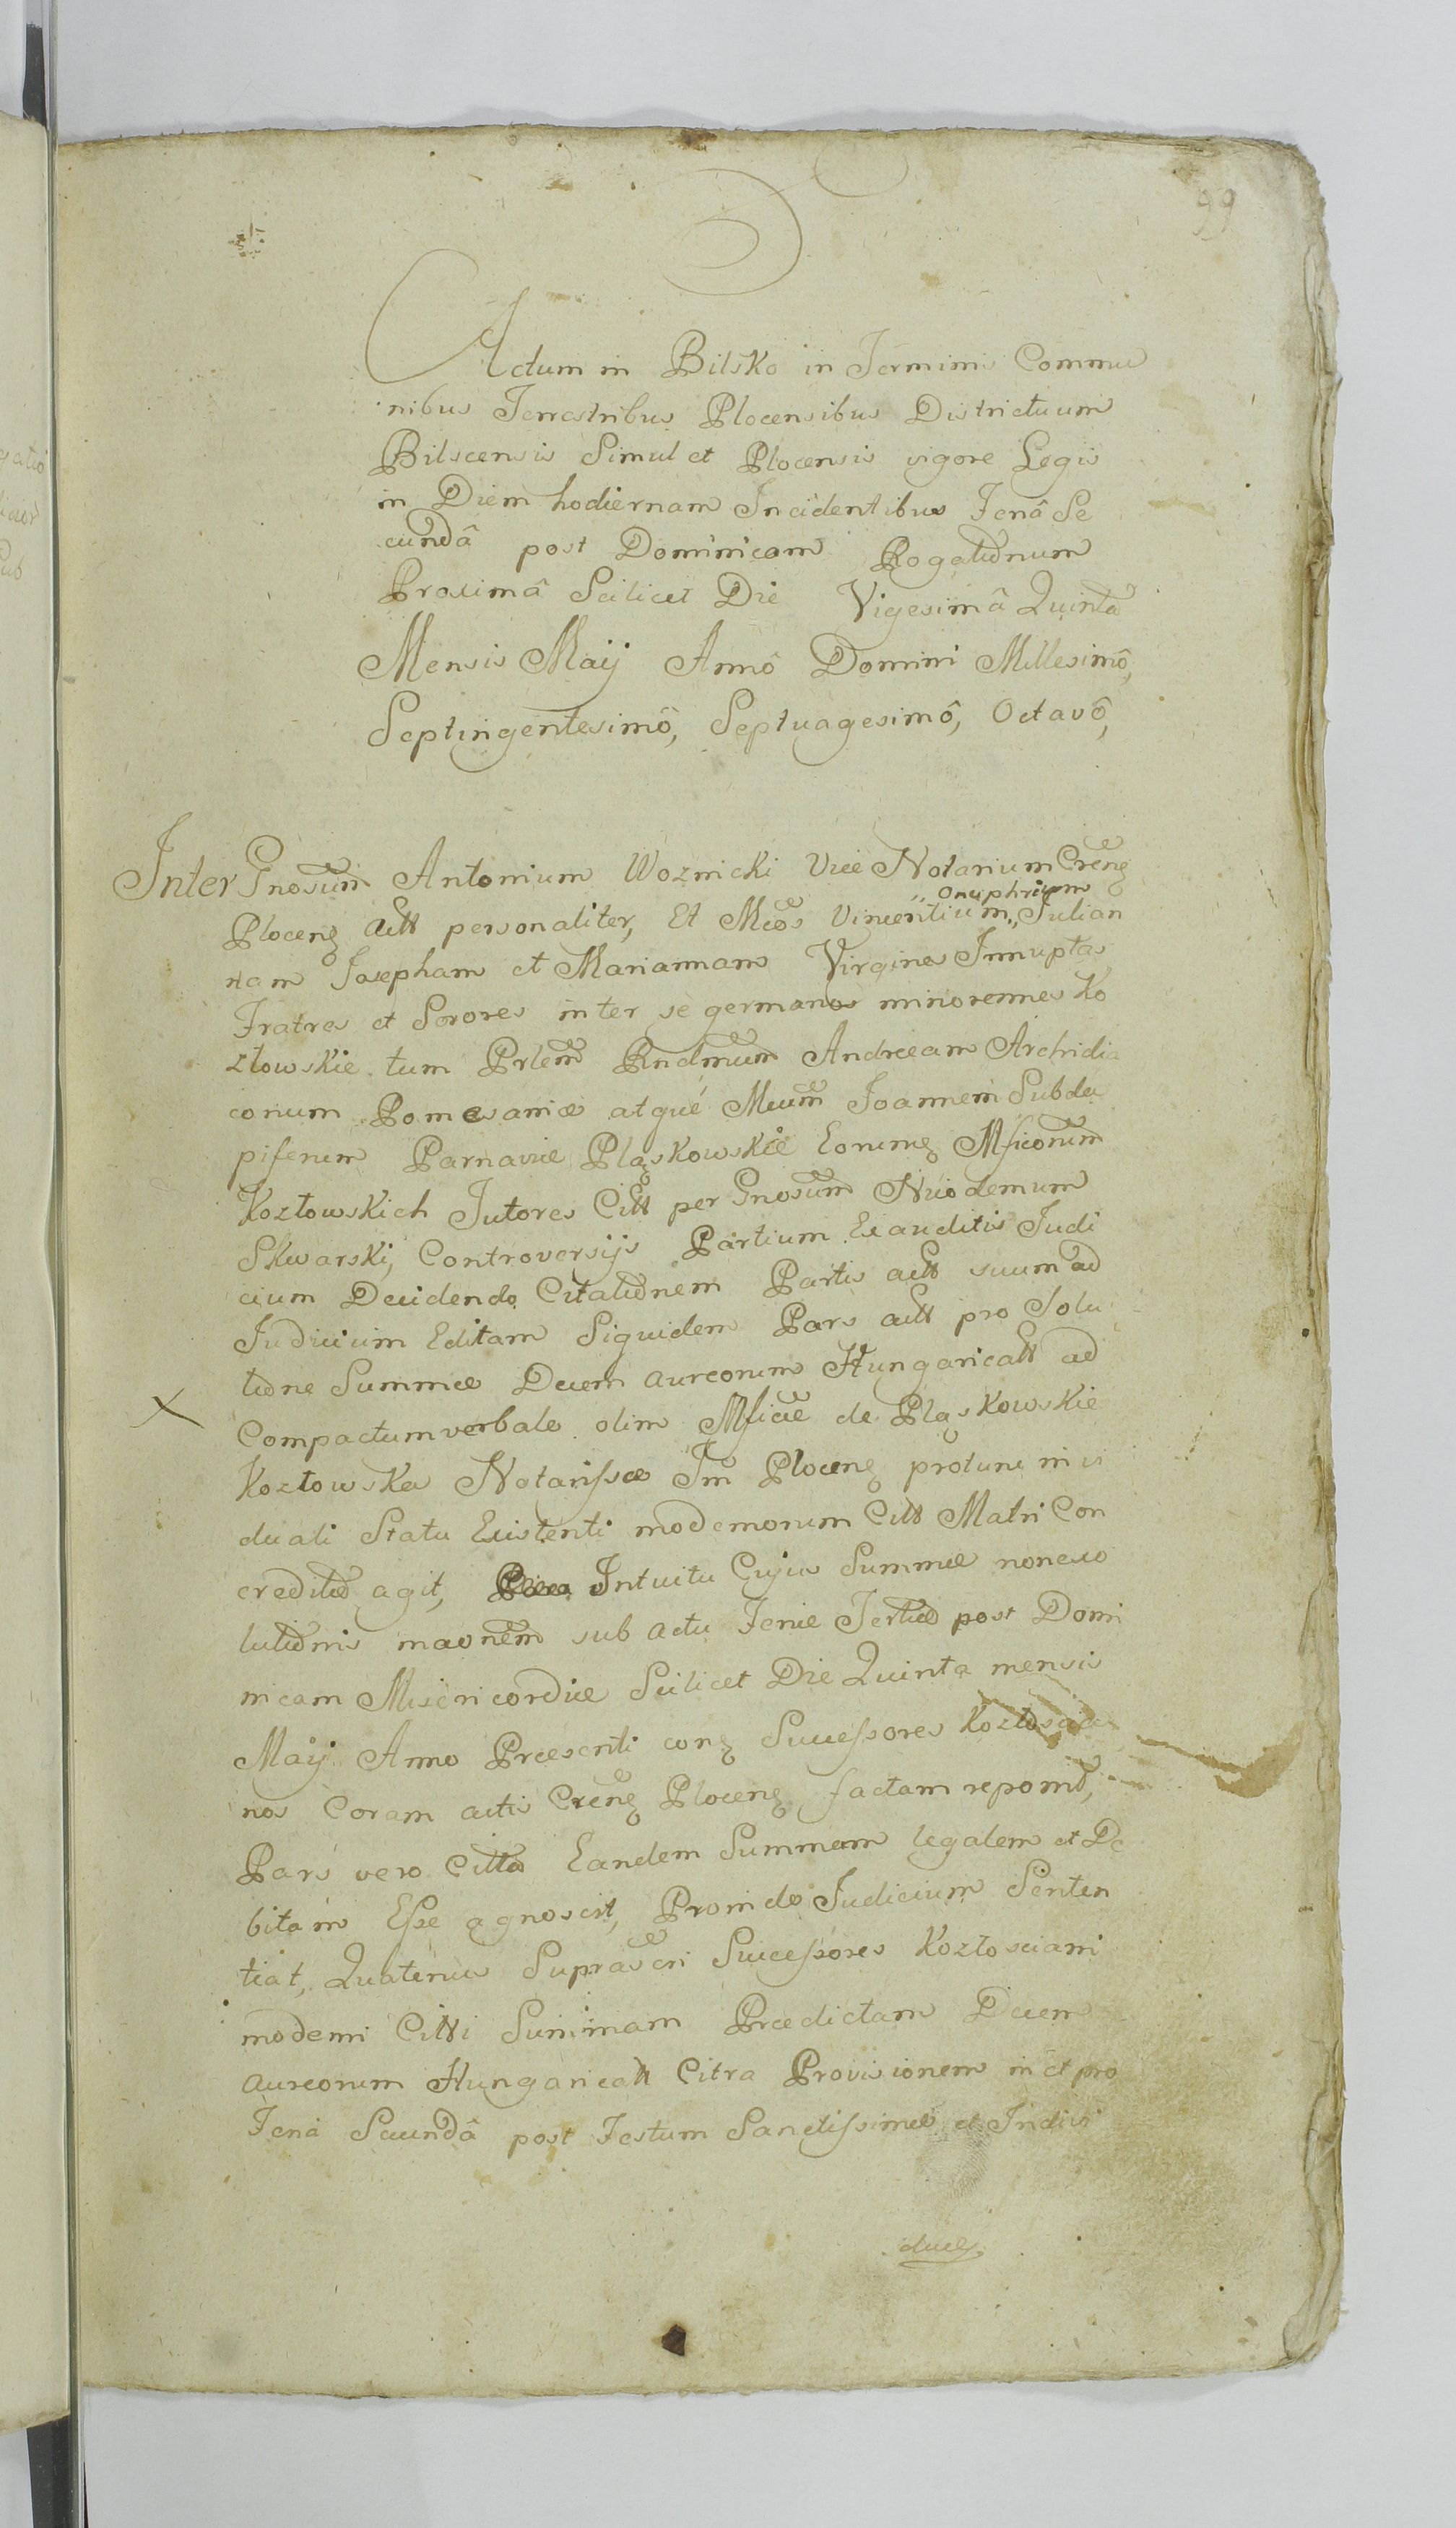 99
Actum in Bilsko in Terminis Commu
nibus Terrestribus Plocensibus Districtuum
Bilscensis Simul et Plocensis vigore Legis
in Diem hodiernam Incidentibus Feriâ Se
cundâ post Dominicam Rogationum
Proximâ Scilicet Die Vigesimâ Quintâ
Mensis Maij Annô Domini Millesimô,
Septingentesimô, Septuagesimô, Octavô,
Inter Gnosum Antonium Woznicki Vice Notarium Cren
Plocen Actt personaliter, Et Mcos Vincentium, Onuphrium Julian
nam Josepham et Mariannam Virgines Innuptas
Fratres et Sorores inter se germanos minorennes Ko
złowskie tum Prlem Rndmum Andream Archidia
conum Pomesaniæ atque Mcum Joannem Subda
piferum Parnaviæ Pląskowskie Eorum Mficorum
Kozłowskich Tutores Citt per Gnosum Nicodemum
Skwarski, Controversijs Partium Exauditis Judi
cium Decidendo Citationem Partis actt suum ad
Judicium Editam Siquidem Pars actt pro Solu
tione Summæ Decem aureorum Hungaricatt ad
Compactum verbale olim Mficæ de Pląskowskie
Kozłowska Notarissæ Plocen protunc in vi
duali Statu Existenti modernorum Citt Matri Con
creditæ agit, Intuitu Cujus Summæ nonexo
lutionis maonem sub actu Feriæ Tertiæ post Domi
nicam Misericordiæ Scilicet Die Quinta mensis
Maij Anno Præsenti con Successores Kozłoscia
nos Coram actis Cren Plocen factam reponit,
Pars vero Citta Eandem Summam legalem et De
bitam Esse agnoscit, Proinde Judicium Senten
tiat, Quatenus Suprascri Successores Kozłosciani
moderni Citti Summam Prædictam Decem
aureorum Hungaricatt Citra Provisionem in et pro
Feria Secundâ post Festum Sanctissimæ et Indivi
duæ